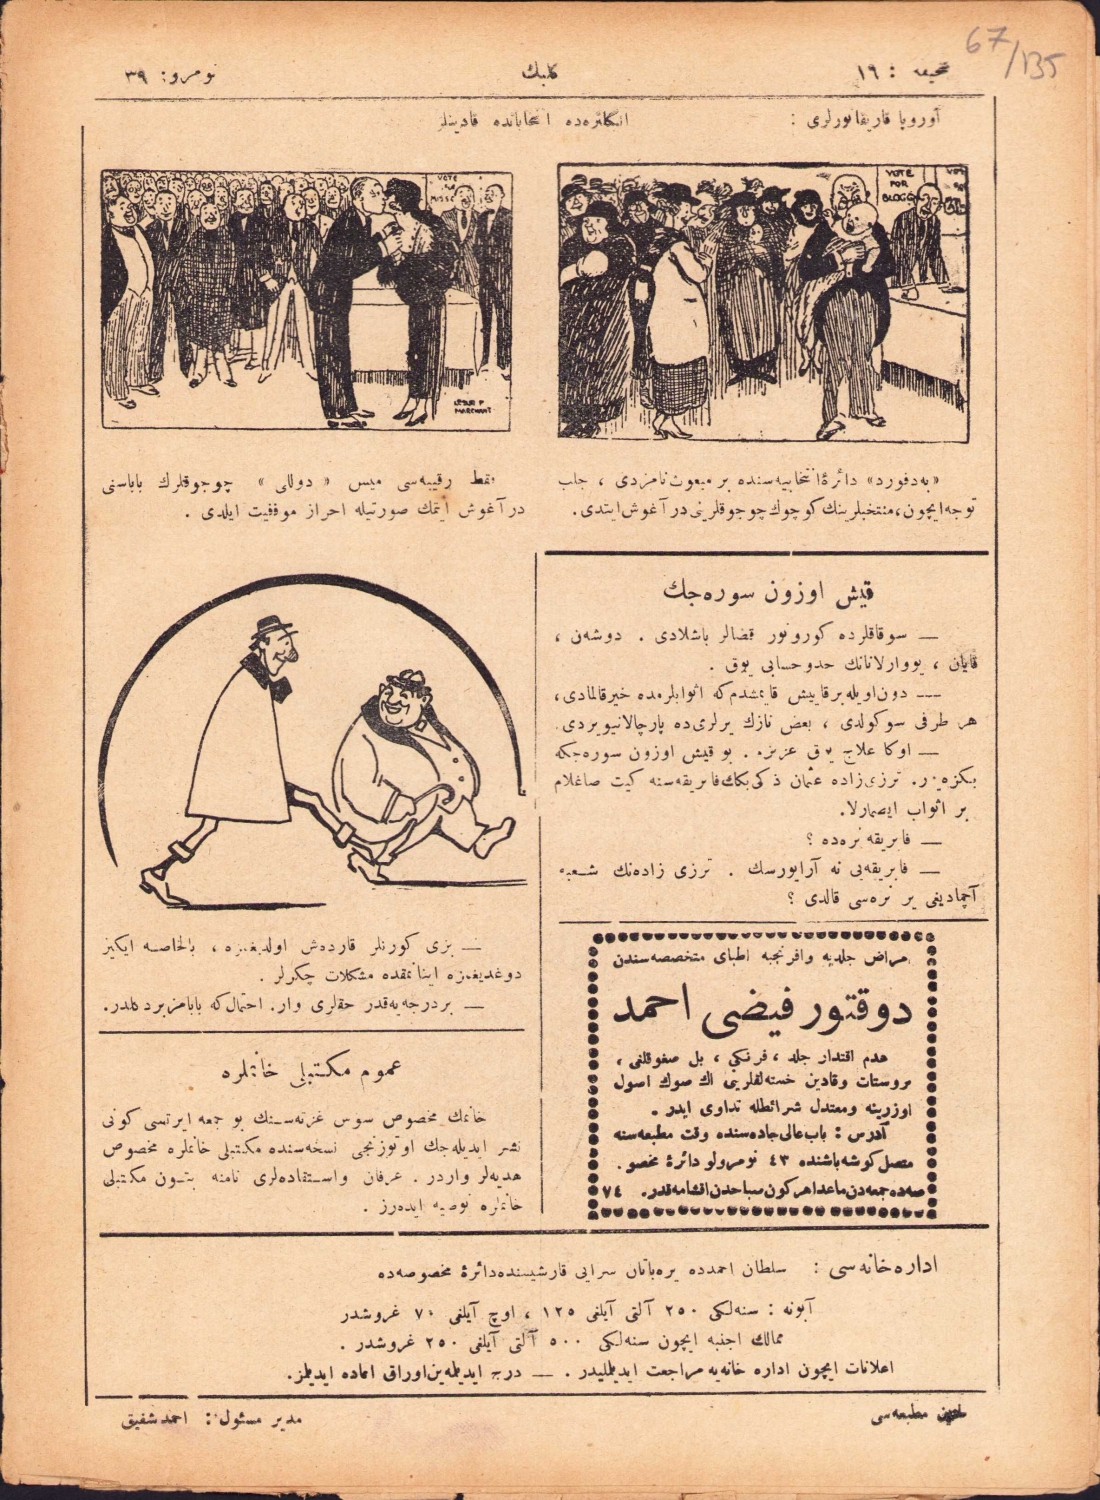 67/135
صحیفه : ١٦
كلبك
نومرو: ٣٩
آوروپا قاریقاتورلری :
انگلتره‌ده انتخاباتده قادینلر
VOTE
FOR
BLOGG
VOTE
MISS
LESLIE P
MARCHANT
«به‌دفورد» دائرۀ انتخابیه‌سنده بر مبعوث نامزدی ، جلب
توجه ایچون، منتخبلرینك كوچوك چوجوقلرینی در آغوش ایتدی.
فقط رقیبه‌سی میس «دوللی» چوجوقلرك باباسنی
در آغوش ایتمك صورتیله احراز موفقیت ایلدی .
قیش اوزون سوره‌جك
— سوقاقلرده كورونور قضالر باشلادی . دوشه‌ن ،
قایان ، یووارلانانك حدوحسابی یوق .
— دون اویله بر قاییش قایمشدم كه اثوابلرمده خیر قالمادی،
هر طرفی سوكولدی ، بعض نازك یرلری‌ده پارچالانیویردی.
— اوكا علاج یوق عزیزم. بو قیش اوزون سوره‌جكه
بكزه‌یور. ترزی‌زاده عثمان ذكی بك‌ك فابریقه‌سنه كیت صاغلام
بر اثواب ایصمارلا.
— فابریقه نره‌ده ؟
— فابریقه‌یی نه آرایورسك . ترزی زاده‌نك شعبه
آچمادیغی یر نره‌سی قالدی ؟
— بزی كورنلر قارده‌ش اولدیغمزه ، بالخاصه ایكیز
دوغدیغمزه اینانمقده مشكلات چكرلر .
— بر درجه‌یه‌قدر حقلری وار. احتمال كه بابامز بر دكلدر.
عموم مكتبلی خانملره
خانملره مخصوص سوس غزته‌سنك بو جمعه ایرتسی كونی
نشر ایدیله‌جك اوتوزنجی نسخه‌سنده مكتبلی خانملره مخصوص
هدیه‌لر واردر . عرفان واستفاده‌لری نامنه بتون مكتبلی
خانملره توصیه ایده‌رز .
امراض جلدیه وافرنجیه اطبای متخصصه‌سندن
دوقتور فیضی احمد
عدم اقتدار جلد ، فرنكی ، بل صغوقلغی ،
پروستات وقادین خسته‌لقلرینی اك صوك اصول
اوزرینه ومعتدل شرائطله تداوی ایدر .
آدرس : باب‌عالی جاده‌سنده وقت مطبعه‌سنه
متصل كوشه‌باشنده ٤٣ نومرولو دائرۀ مخصو-
صه‌ده جمعه‌دن ماعدا هر كون صباحدن اقشامه‌قدر. ٧٤
اداره‌خانه‌سی : سلطان احمدده یره‌باتان سرایی قارشیسنده دائرۀ مخصوصه‌ده
آبونه : سنه‌لكی ٢٥٠ آلتی آیلغی ١٢٥ ، اوچ آیلغی ٧٠ غروشدر
ممالك اجنبیه ایچون سنه‌لكی ٥٠٠ آلتی آیلغی ٢٥٠ غروشدر .
اعلانات ایچون اداره خانه‌یه مراجعت ایدیلملیدر . — درج ایدیلمه‌ین اوراق اعاده ایدیلمز.
مطبعه‌سی
مدیر مسئول : احمد شفیق